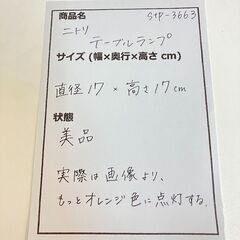 商品名 stp-3663
ニトリ
テーブルランプ
サイズ (幅×奥行×高さ cm)
直径17 × 高さ17cm
状態
美品
実際は画像より、
もっとオレンジ色に点灯する。